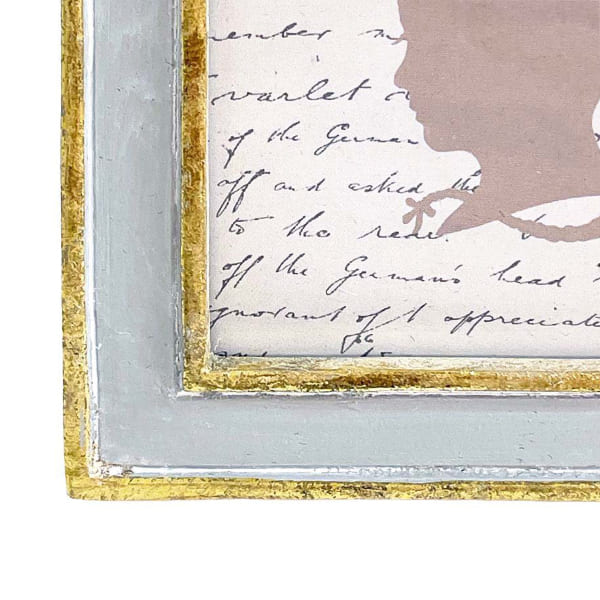 member m
varlet
of the German
off and asked the
to the rear.
off the German's head
ignorant of t appreciate